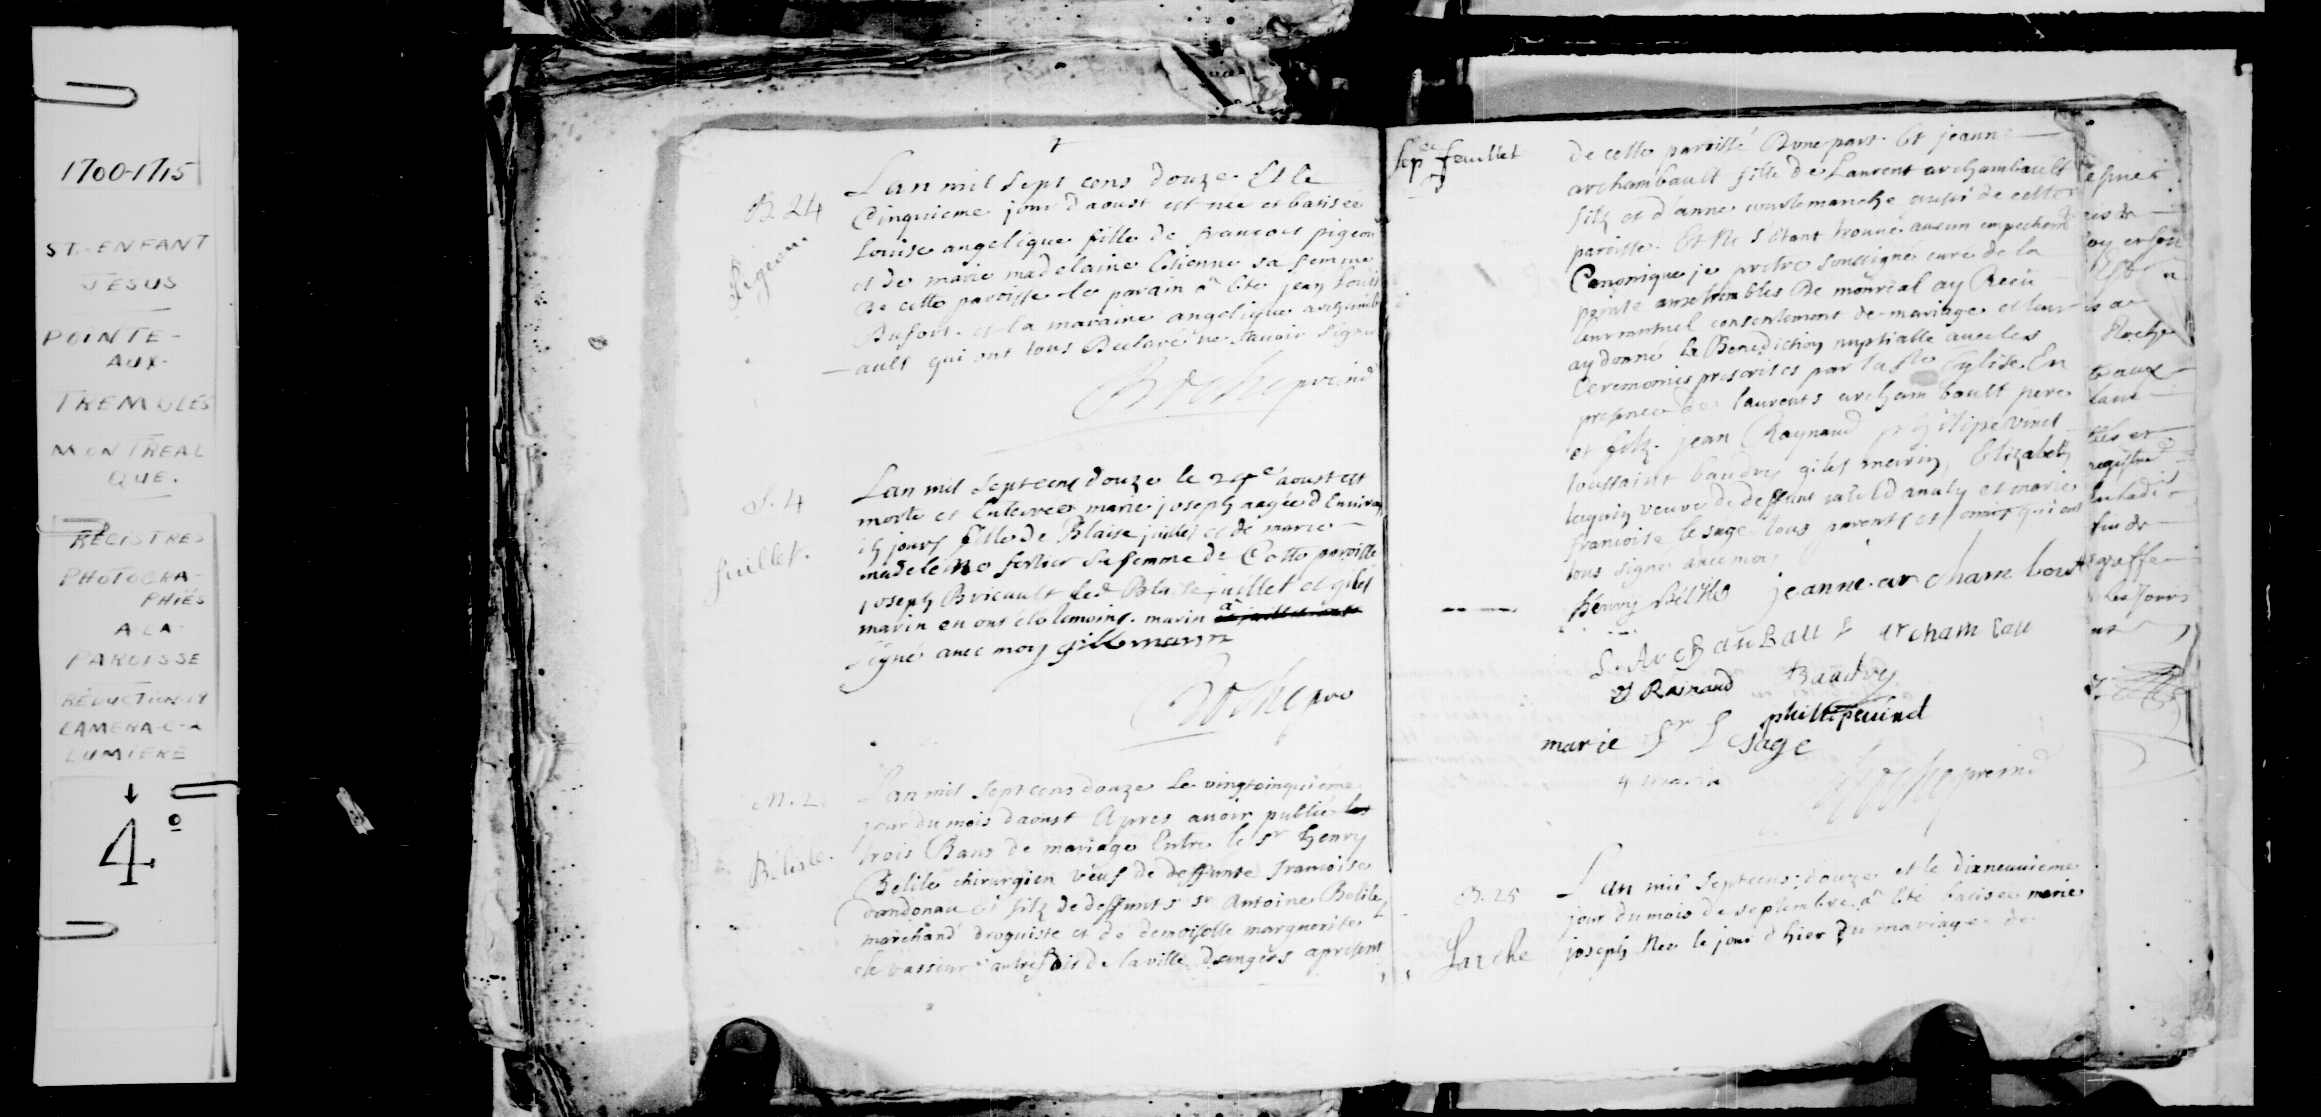 1700-1715
ST. ENFANT
JESUS
POINTE-
AUX-
TREMBLES
MONTREAL
QUE.
REGISTRES
PHOTOGRA-
PHIÉS
A LA
PAROISSE
RÉDUCTION-19
CAMERA-C-2
LUMIERE
4°
B. 24
Pigeon
Lan mil sept cens douze Et le
Cinquieme jour daoust est née et batisée
Louise angelique fille de francois pigeon
et de marie madelaine Etienne sa femme
De cette paroisse le parain a été jean Louis
Dufort et la maraine angelique archamb
ault qui ont tous Declaré ne savoir signer
S. 4
juillet.
Lan mil sept cens douze le 24e aoust est
morte et Enterrée marie joseph aagée d Environ
15 jours fille de Blaise juillet et de marie
madeleine fortier sa femme de Cette paroisse
joseph Bricault led Blaise juillet et giles
marin en ont été temoins. marin a
signé avec moy gille marin
M. 2
Belisle.
Lan mil sept cens douze le vingtcinquieme
jour du mois daoust Apres avoir publié les
trois Bans de mariage Entre le sr henry
Belile chirurgien veuf de deffunte francoise
dandonau et filz de deffunts sr Antoine Belile
marchand droguiste et de demoiselle marguerite
le vasseur autrefois de la ville dangers apresent
sepe feuillet
de cette paroisse Dune part. Et jeanne
archambault fille de Laurent archambault
filz et d'anne courtemanche aussi de cette
paroisse. Et Ne s'étant trouvé aucun empechemt
Canonique je pretre soussigné curé de la
pointe aux trembles De monreal ay Recu
leur mutuel consentement de mariage et leur
ay donné la Benediction nuptialle avec les
Ceremonies prescrites par la ste Eglise En
presence de laurents archambault pere
et filz. jean Raynaud philipe vinet
toussaint baudry giles marin, Elizabeth
veuve de deffunt et marie
francoise le sage tous parents et amis qui ont
tous signé avec moy
henry Belile jeanne archambout
L. Archanbault L archambau
J Rainaud Baudry
phillipe vined
marie fr L sage
g marin
B. 25
Larche
Lan mil sept cens douze et le dixneuvieme
jour du mois de septembre a été batisée marie
joseph Née le jour d hier Du mariage de